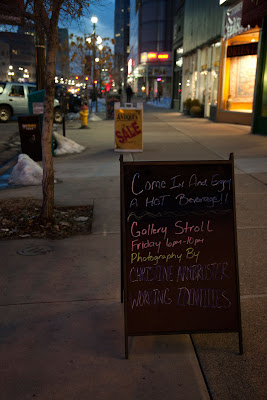 Come In And Enjoy
A HOT Beverage!!
Gallery Stroll
Friday 6pm-10pm
Photography By
CHRISTINE ARMBRUSTER
WORKING IDENTITIES
ANTIQUE
SALE